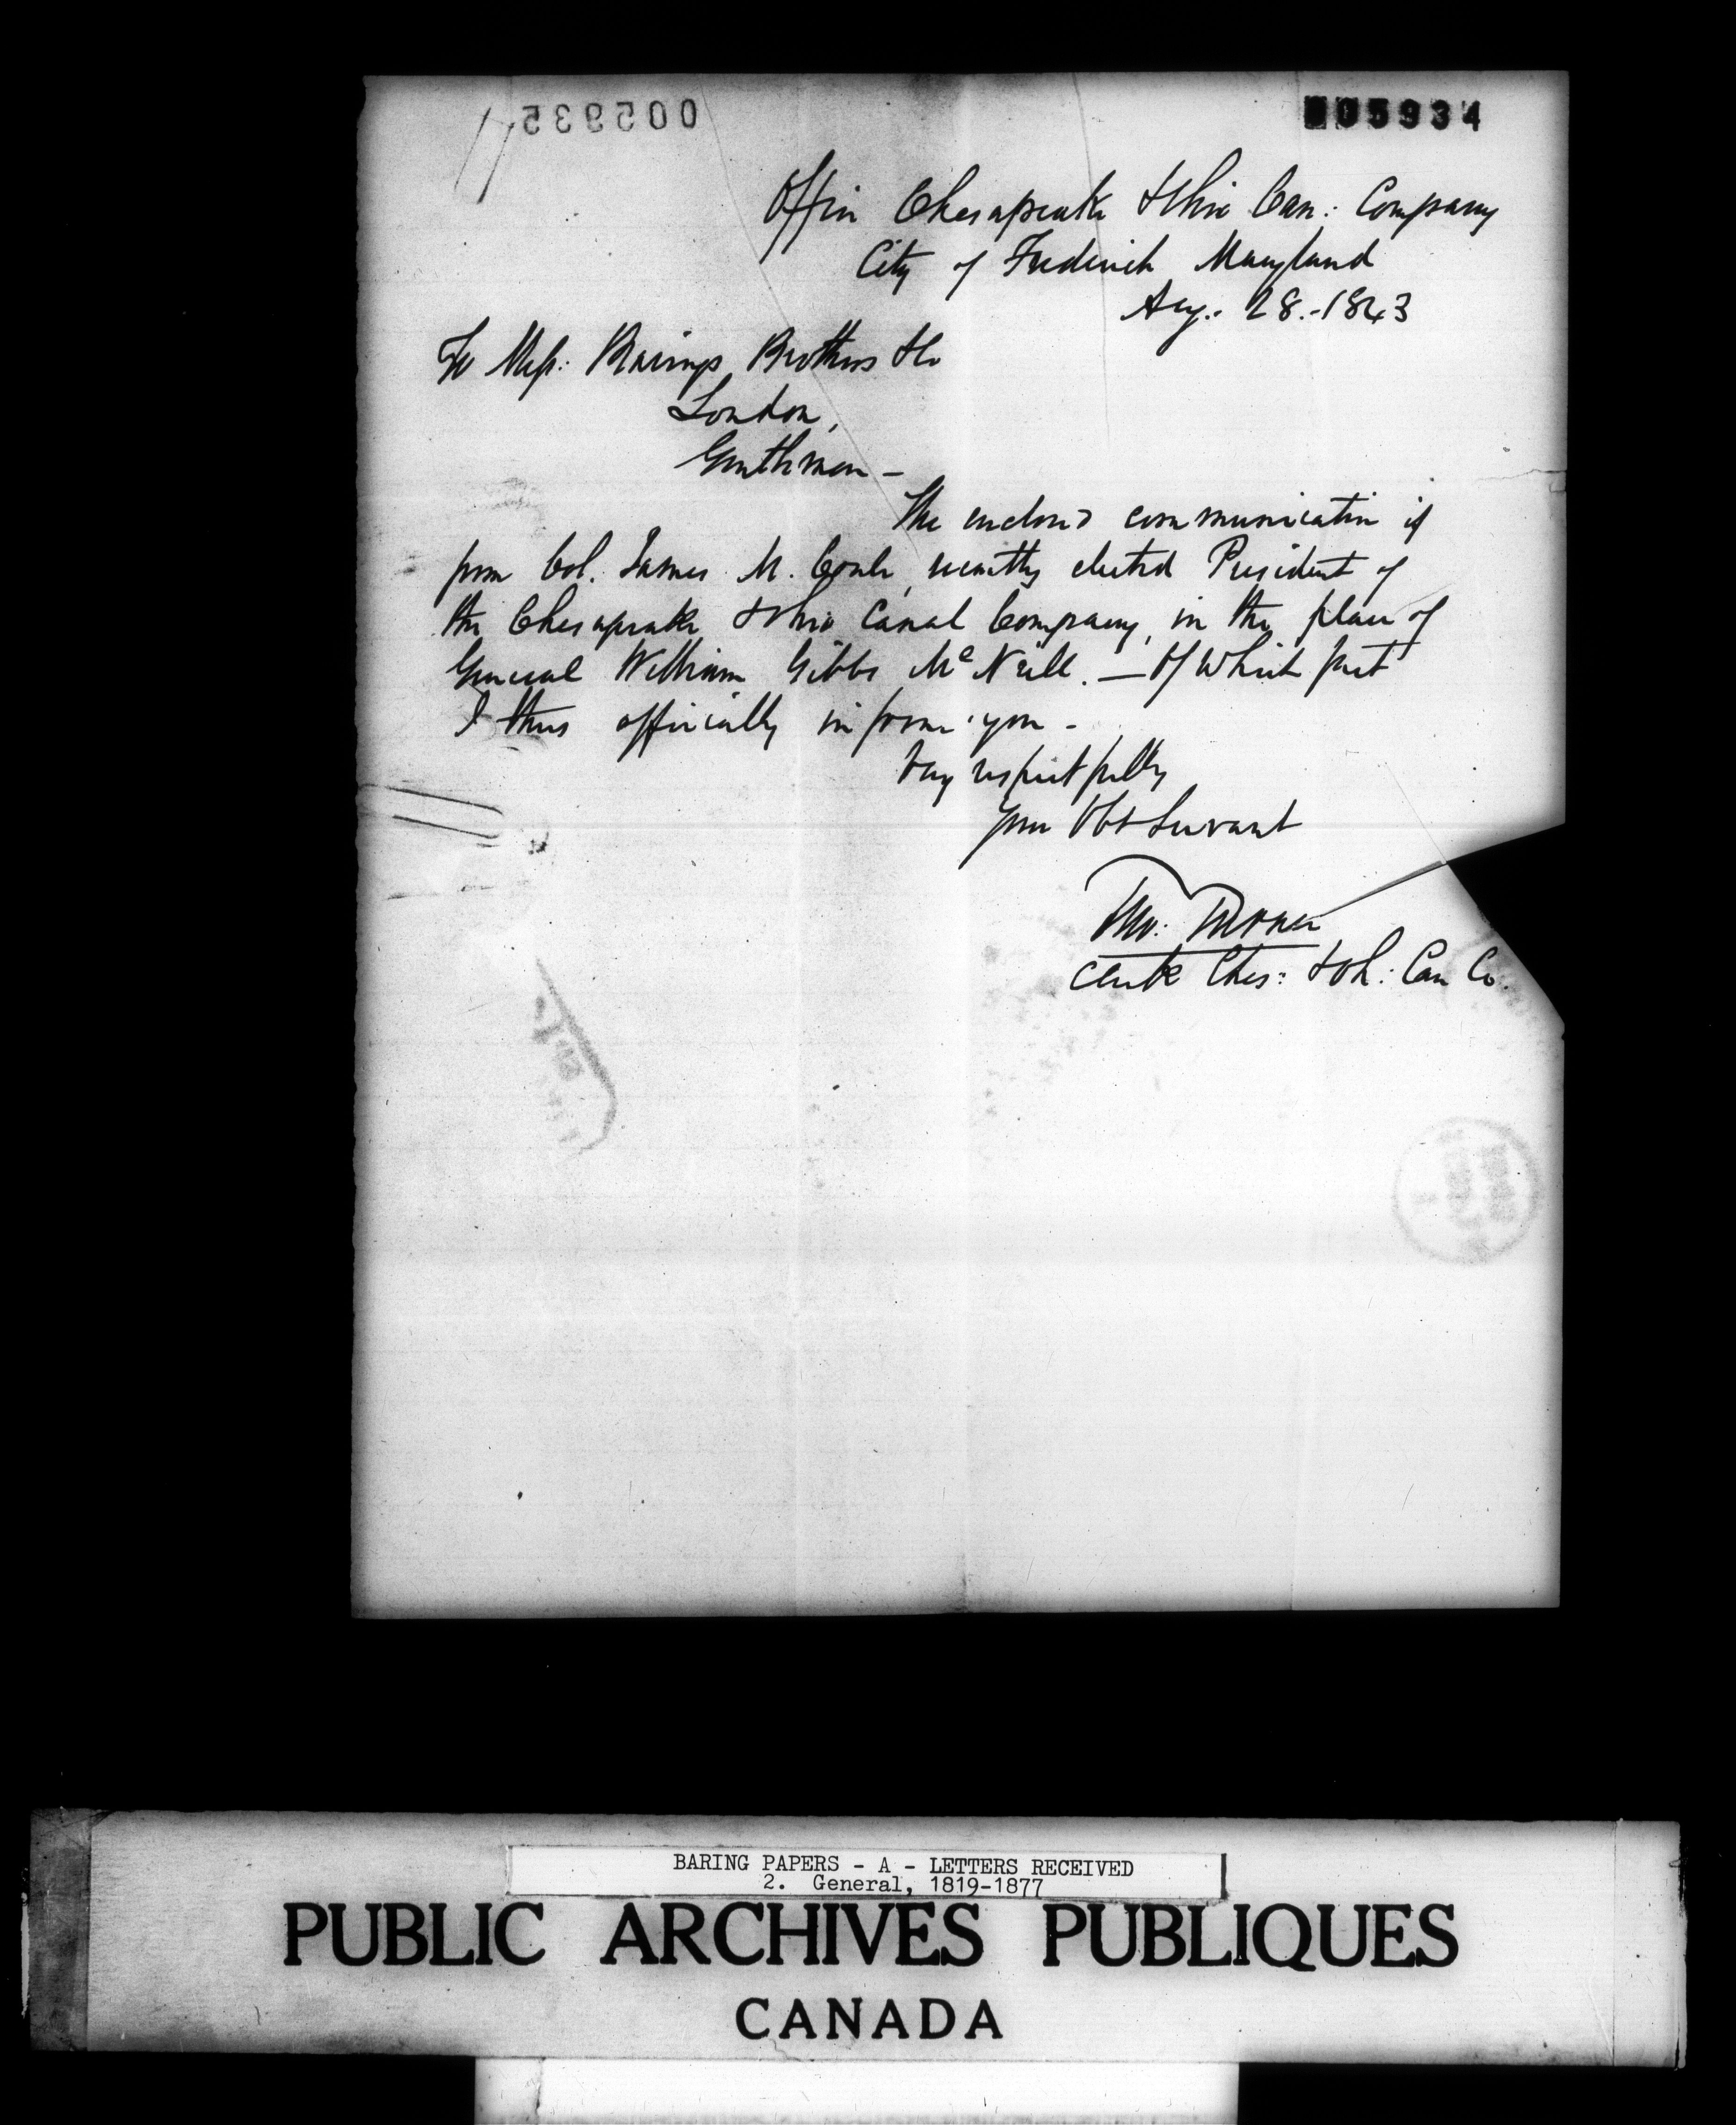 005934
Office Chesapeake & Ohio Can: Company
City of Frederick Maryland
Aug.. 28.-1843
To Mess: Barings Brothers & Co
London,
Gentlemen -
The enclosed communication is
from Col. James M. Coale, recently elected President of
the Chesapeake & Ohio Canal Company, in the place of
General William Gibbs McNeill. — Of which fact
I thus officially inform you -
Very respectfully
Your Obt Servant
Tho: Turner
Clerk Ches: & Oh: Can Co.
BARING PAPERS - A - LETTERS RECEIVED
2. General, 1819-1877
PUBLIC ARCHIVES PUBLIQUES
CANADA